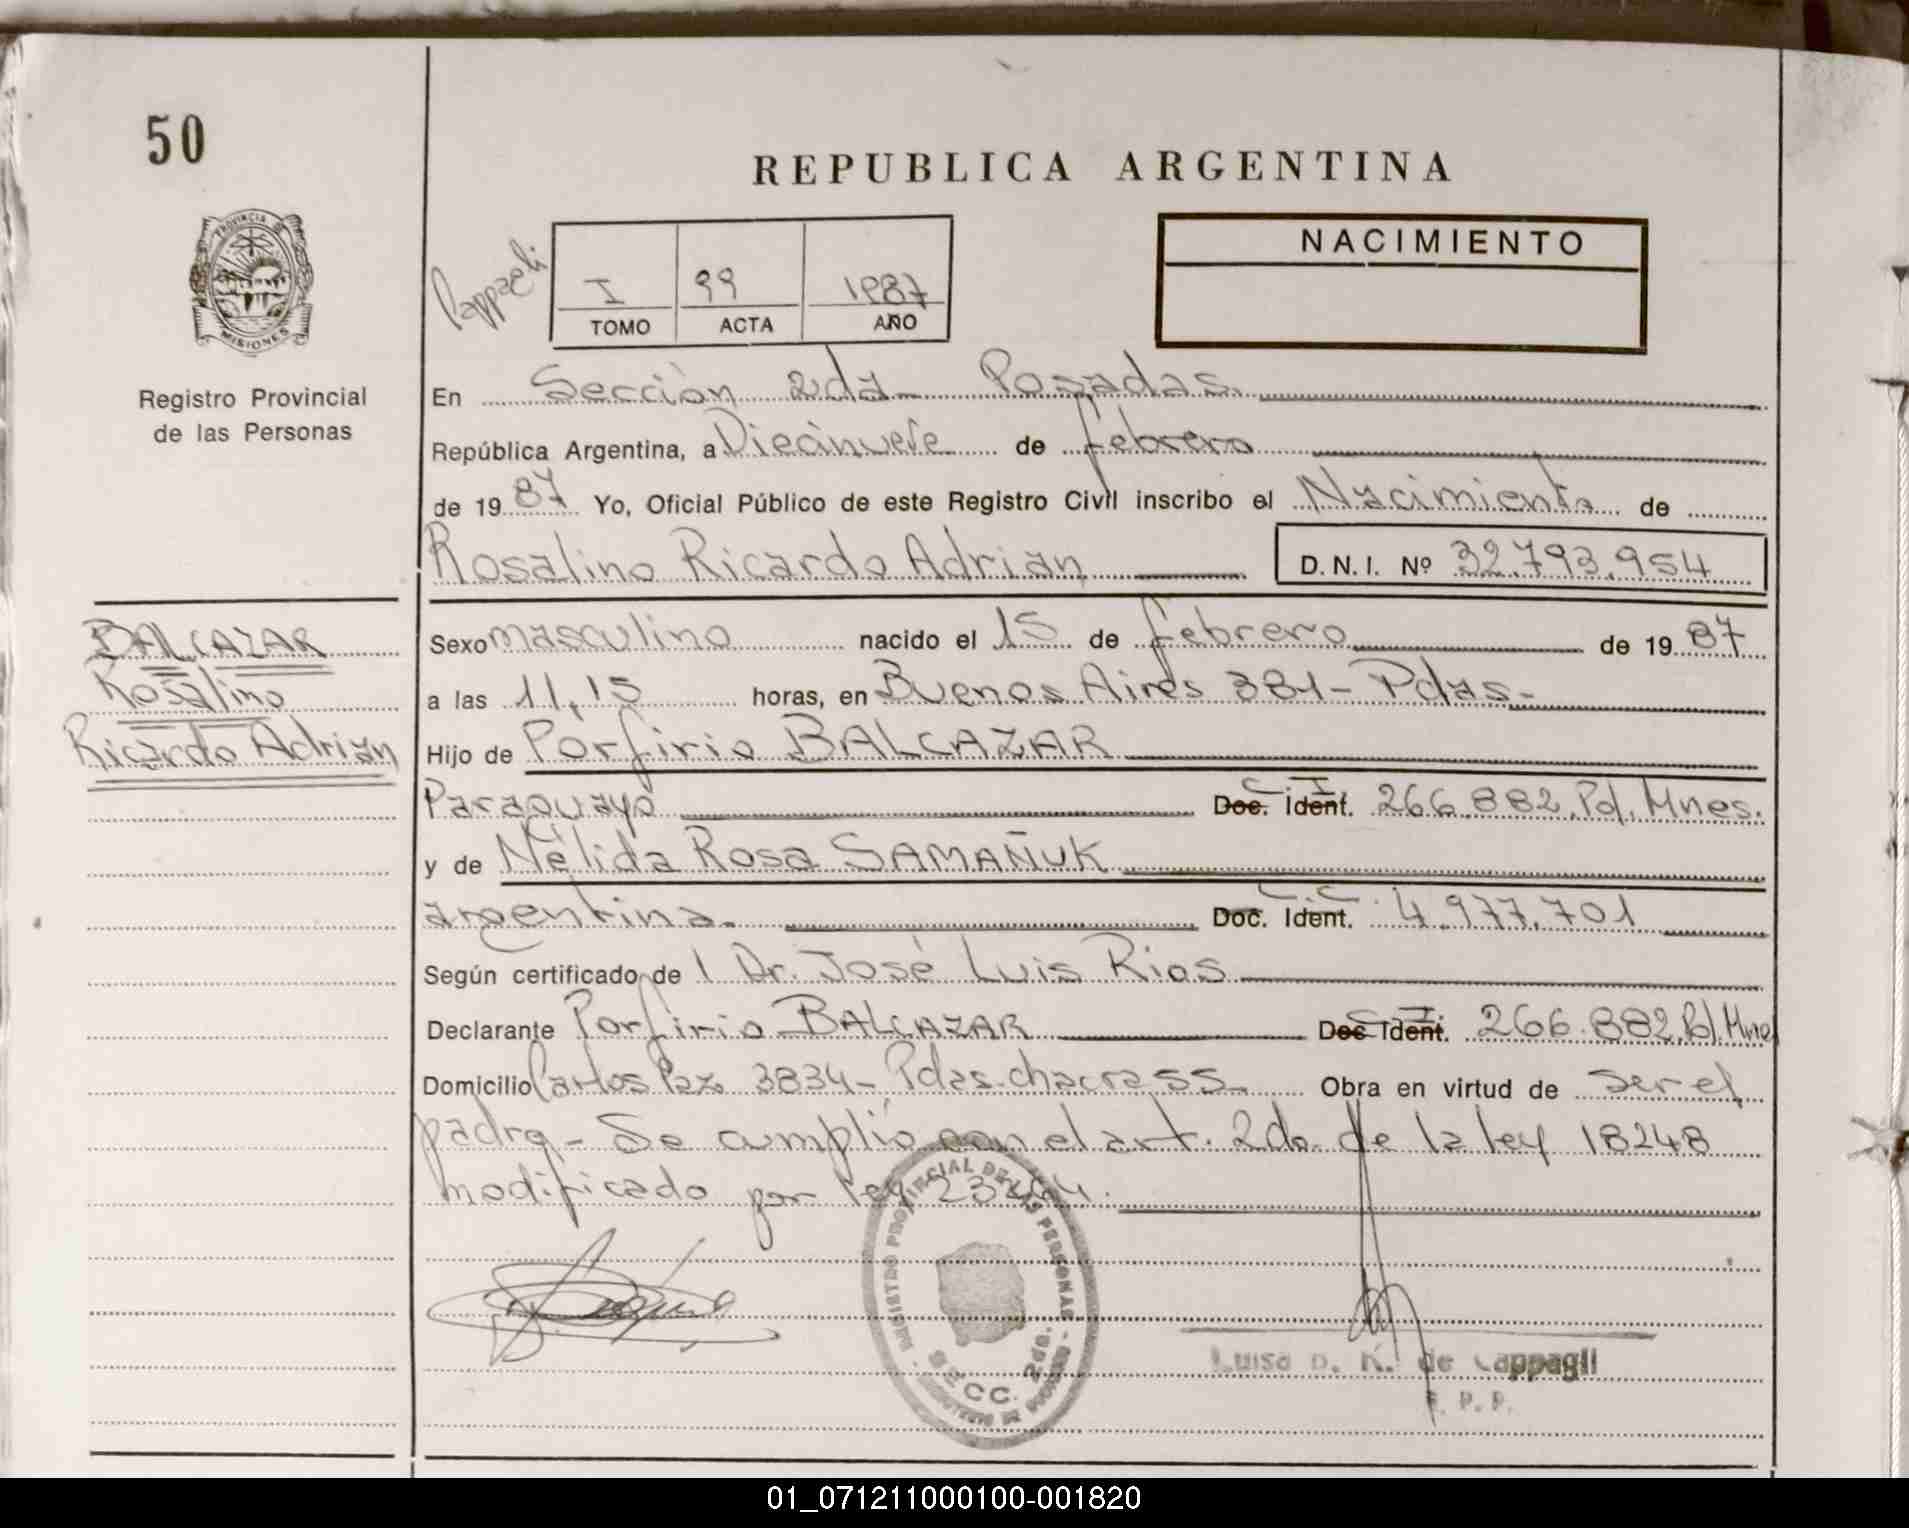 50
REPUBLICA ARGENTINA
PROVINCIA DE
MISIONES
Registro Provincial
de las Personas
Cappagli
I 99 1987
TOMO ACTA AÑO
NACIMIENTO
En Sección 2da - Posadas.
República Argentina, a Diecinueve de febrero
de 19 87 Yo, Oficial Público de este Registro Civil inscribo el Nacimiento de
Rosalino Ricardo Adrian D.N.I. Nº 32.793.954
BALCAZAR
Rosalino
Ricardo Adrian
Sexo masculino nacido el 15 de febrero de 19 87
a las 11,15 horas, en Buenos Aires 381 - Pdas -
Hijo de Porfirio BALCAZAR
Paraguayo C.I. Doc. Ident. 266.882 Pol. Mnes.
y de Nélida Rosa SAMAÑUK
argentina. C.C. Doc. Ident. 4.977.701
Según certificado de l Dr. José Luis Rios
Declarante Porfirio BALCAZAR C.I. Doc Ident. 266.882 Pol. Mnes
Domicilio Carlos Paz 3834 - Pdas. chacra 55 - Obra en virtud de ser el
padre - Se cumplió con el art. 2do. de la ley 18248
modificado por ley
REGISTRO PROVINCIAL DE LAS PERSONAS
SECC. 2da.
Luisa de Cappagli
01_071211000100-001820